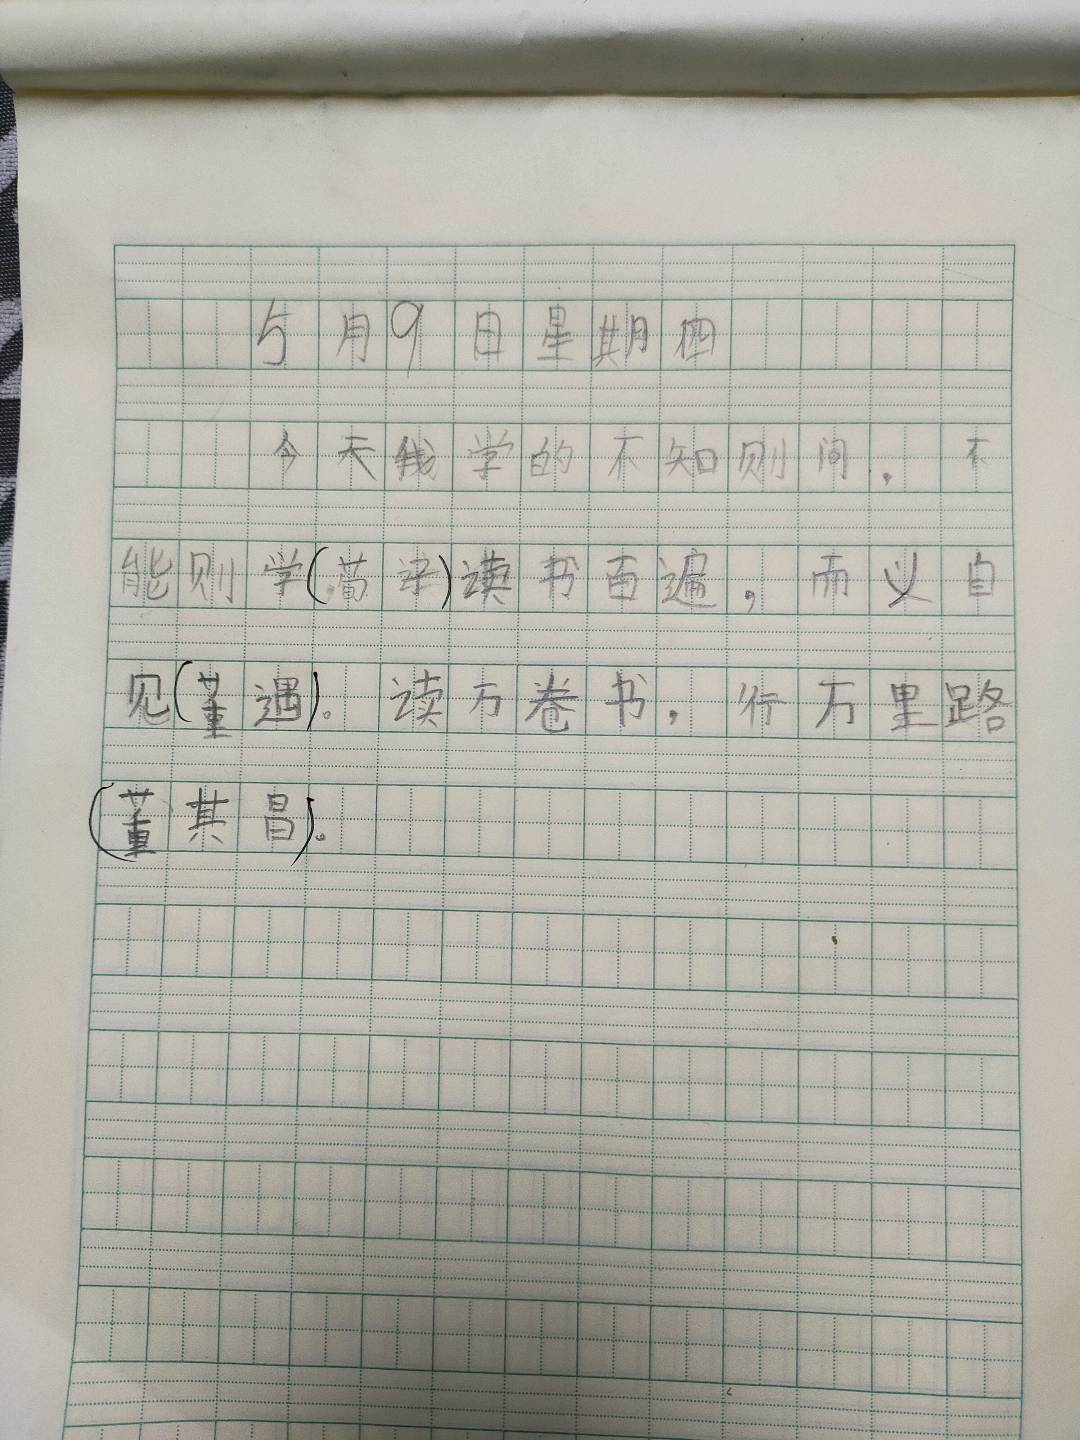 5月9日星期四
今天我学的不知则问，不
能则学(荀子)读书百遍，而义自
见(董遇)。读万卷书，行万里路
(董其昌)。